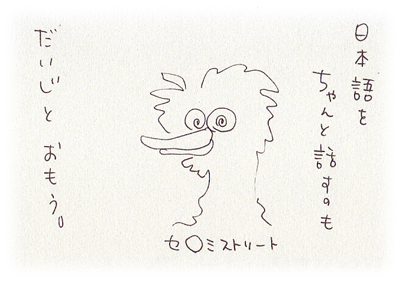 日本語を
ちゃんと話すのも
だいじと おもう。
セ〇ミストリート